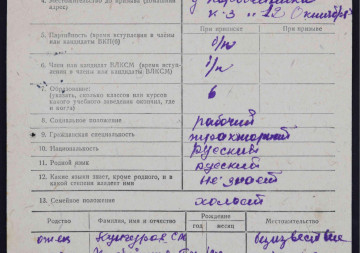 4. Местожительство до призыва (домашний адрес)
к-з "12 Октября"
При приписке
При призыве
5. Партийность (время вступления в члены или кандидаты ВКП(б)
б/п
6. Член или кандидат ВЛКСМ (время вступления в члены или кандидаты ВЛКСМ)
б/п
7. Образование:
(указать, сколько классов или курсов какого учебного заведения окончил, где и когда)
6
8. Социальное положение
рабочий
9. Гражданская специальность
10. Национальность
русский
11. Родной язык
русский
12. Какие языки знает, кроме родного, и в какой степени владеет ими
не знает
13. Семейное положение
холост
Родство
Фамилия, имя и отчество
Рождение
год
месяц
Местожительство
отец